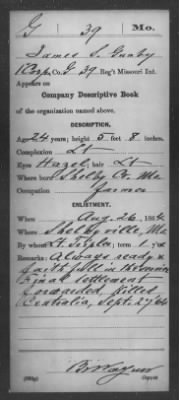 G 39 Mo.
James S. Gunby
Corp., Co. G 39 Reg't Missouri Inf.
Appears on
Company Descriptive Book
of the organization named above.
DESCRIPTION.
Age 24 years; height 5 feet 8 inches.
Complexion Lt
Eyes Hazel; hair Lt
Where born Shelby Co. Mo
Occupation farmer
ENLISTMENT.
When Aug. 26, 1864
Where Shelbyville, Mo
By whom ; term 1 y'rs
Remarks: Always ready &
faithful in the
Final settlement
forwarded. Killed
Centralia, Sept. 27/64
Copyist